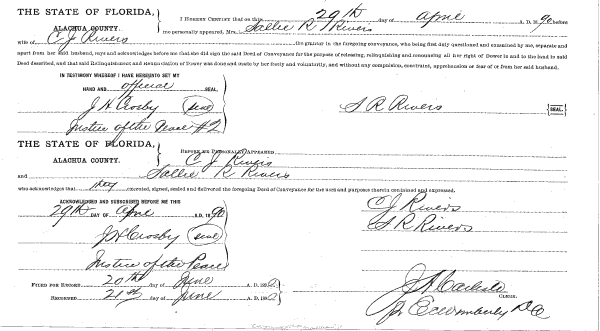 THE STATE OF FLORIDA,
ALACHUA COUNTY.
I HEREBY CERTIFY that on this 29th day of April A. D. 90 before
me personally appeared, Mrs. Sallie R Rivers
wife of C J Rivers the grantor in the foregoing conveyance, who being first duly questioned and examined by me, separate and
apart from her said husband, says and acknowledges before me that she did sign the said Deed of Conveyance for the purpose of releasing, relinquishing and renouncing all her right of Dower in and to the land in said
Deed described, and that said Relinquishment and Renunciation of Dower was done and made by her freely and voluntarily, and without any compulsion, constraint, apprehension or fear of or from her said husband.
IN TESTIMONY WHEREOF I HAVE HEREUNTO SET MY
HAND AND official SEAL.
J H Crosby (seal)
S R Rivers SEAL
Justice of the Peace #2
THE STATE OF FLORIDA,
ALACHUA COUNTY.
BEFORE ME PERSONALLY APPEARED
C J Rivers
and Sallie R Rivers
who acknowledges that they executed, signed, sealed and delivered the foregoing Deed of Conveyance for the uses and purposes therein contained and expressed.
ACKNOWLEDGED AND SUBSCRIBED BEFORE ME THIS
29th DAY OF April A.D. 1890
C J Rivers
S R Rivers
J H Crosby (seal)
Justice of the Peace
FILED FOR RECORD 20th day of June A. D. 1890
RECORDED 21st day of June A. D. 1890
CLERK.